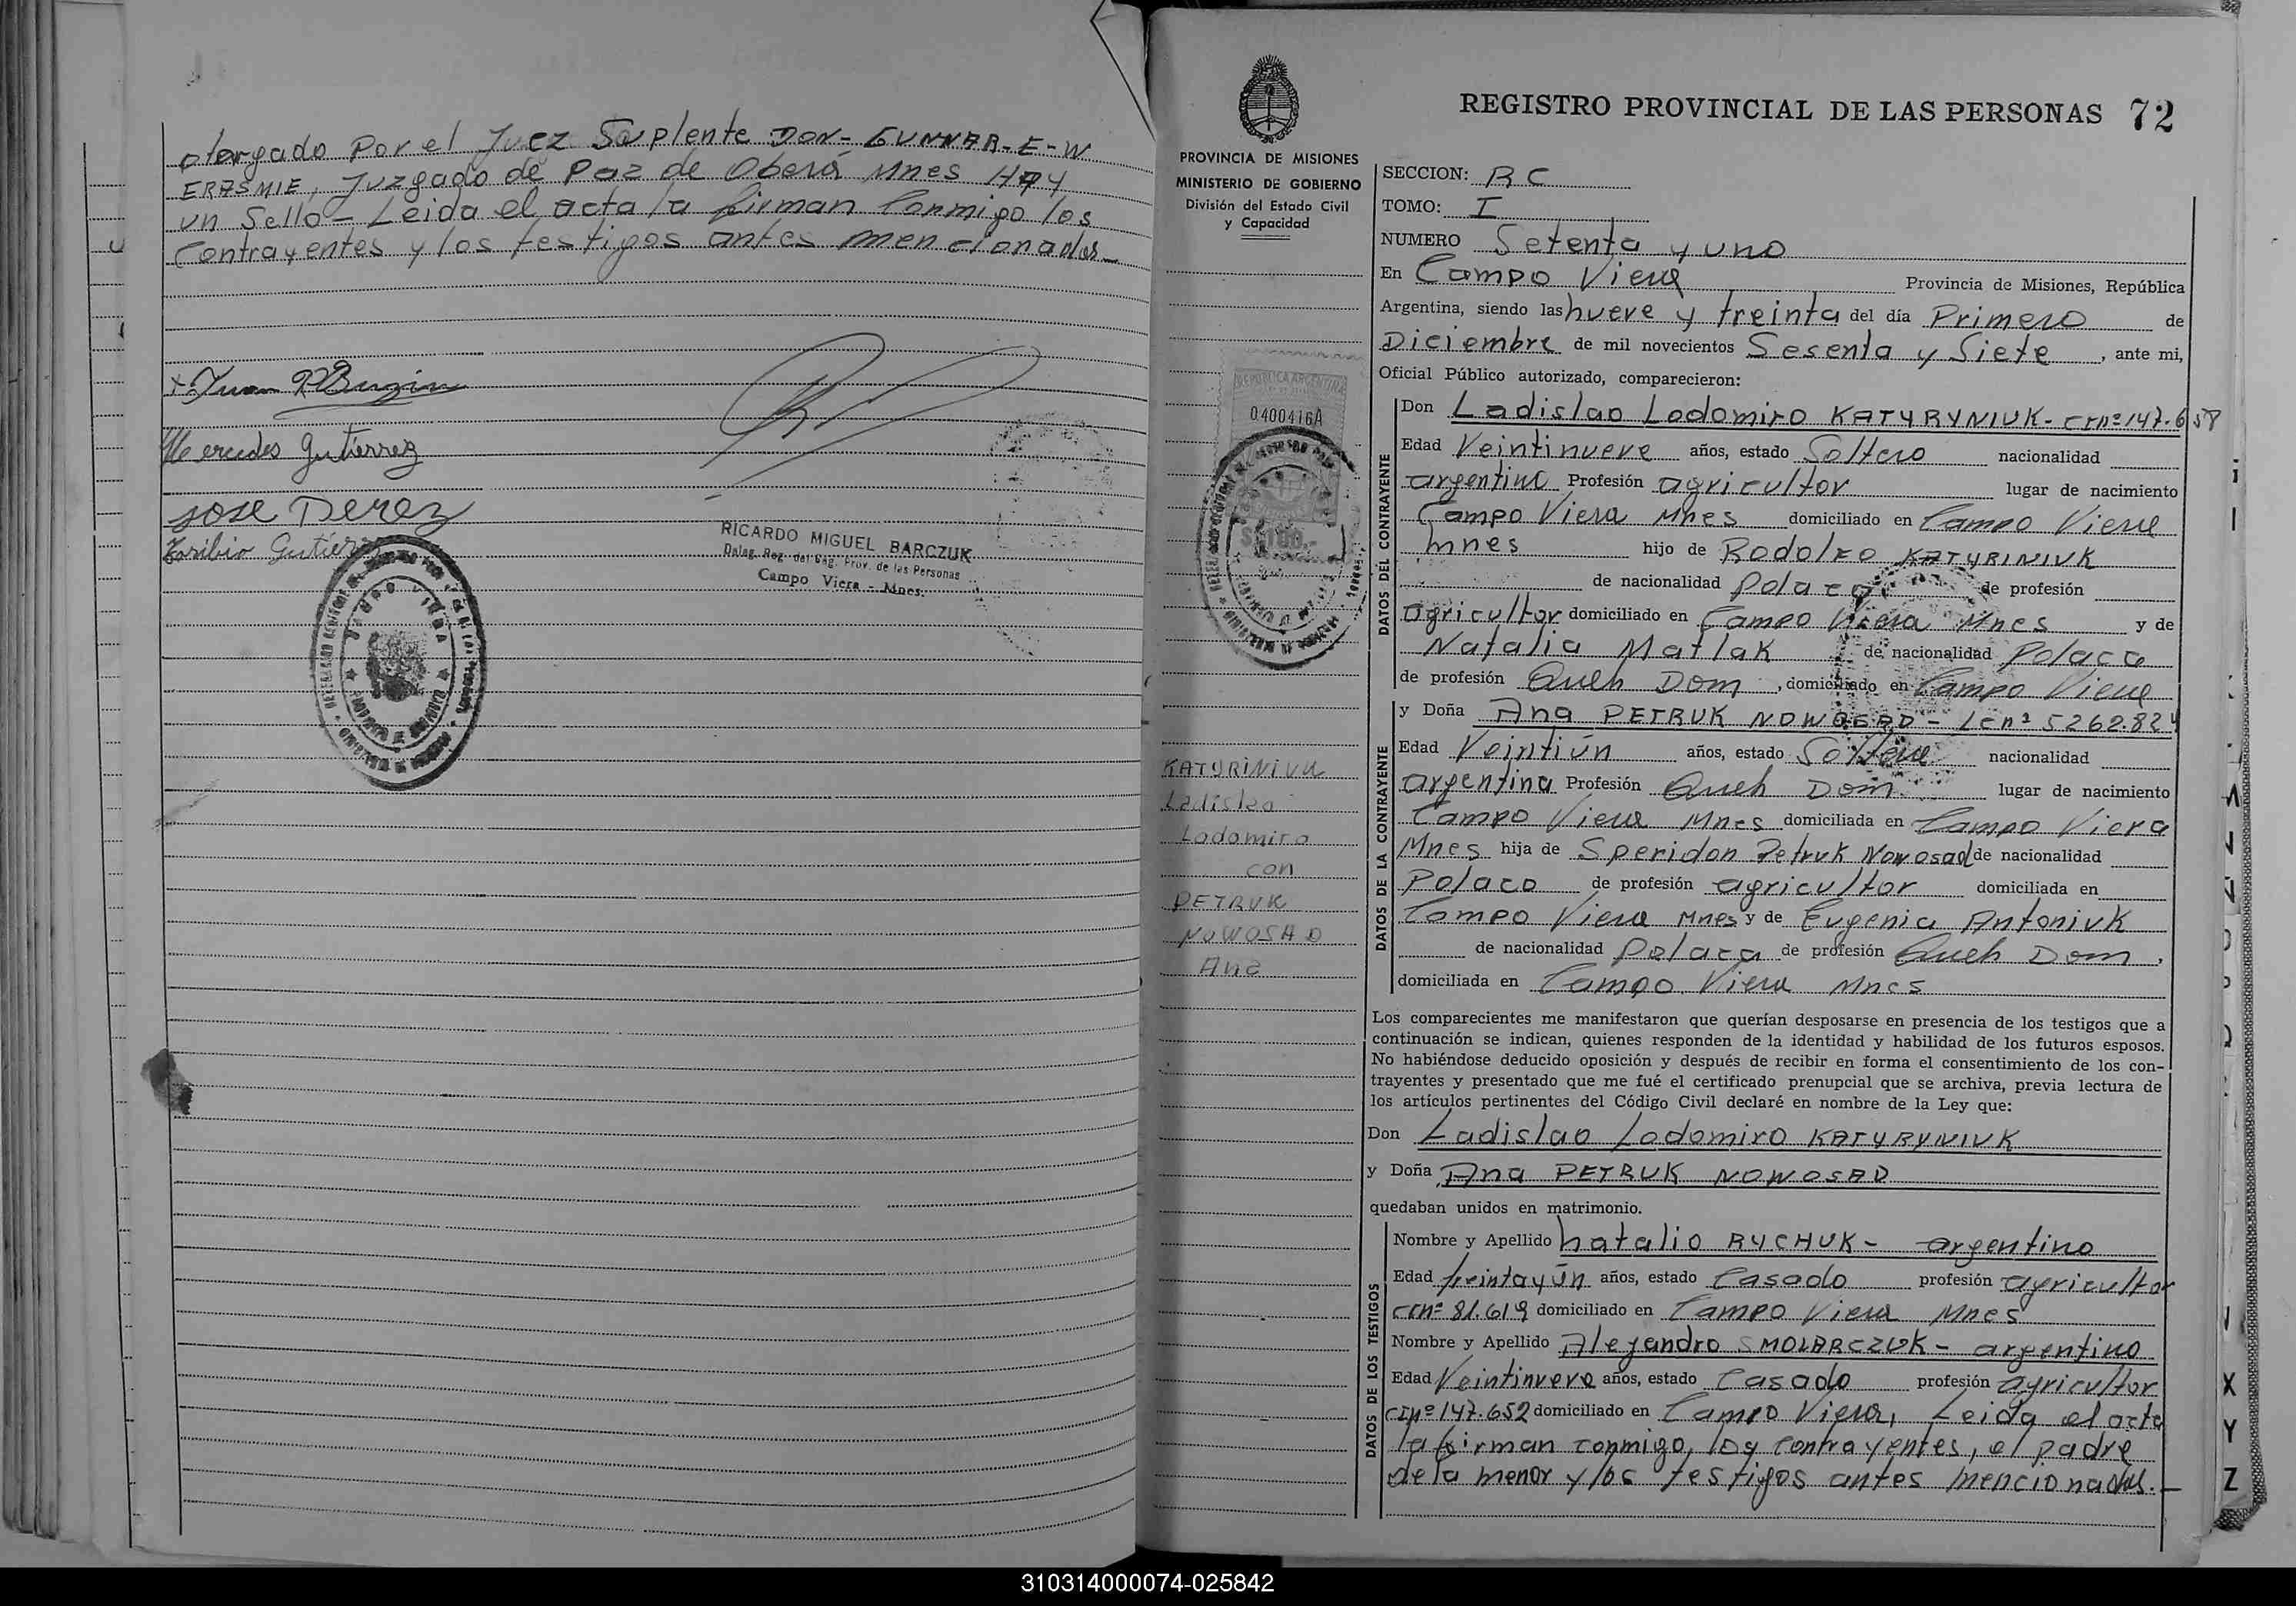 otorgado Por el Juez Suplente DON- GUNNAR-E-W
ERASMIE, Juzgado de Paz de Oberá Mnes Hay
un Sello- Leida el acta la firman Conmigo los
Contrayentes y los testigos antes mencionados-
Mercedes Gutierrez
Jose Perez
Toribio Gutierrez
RICARDO MIGUEL BARCZUK
Deleg. Reg. del Reg. Prov. de las Personas
Campo Viera - Mnes.
PROVINCIA DE MISIONES
MINISTERIO DE GOBIERNO
División del Estado Civil
y Capacidad
REPUBLICA ARGENTINA
0400416A
KATYRINIUK
Ladislao
Lodomiro
con
PETRUK
NOWOSAD
Ana
REGISTRO PROVINCIAL DE LAS PERSONAS 72
SECCION: RC
TOMO: I
NUMERO Setenta y uno
En Campo Viera Provincia de Misiones, República
Argentina, siendo las nueve y treinta del día Primero de
Diciembre de mil novecientos Sesenta y Siete, ante mi,
Oficial Público autorizado, comparecieron:
DATOS DEL CONTRAYENTE
Don Ladislao Lodomiro KATYRYNIUK- CI nº 147.658
Edad Veintinueve años, estado Soltero nacionalidad
argentino Profesión agricultor lugar de nacimiento
Campo Viera Mnes domiciliado en Campo Viera
Mnes hijo de Rodolfo KATYRINIUK
de nacionalidad Polaco de profesión
agricultor domiciliado en Campo Viera Mnes y de
Natalia Matlak de nacionalidad Polaca
de profesión Queh Dom, domiciliado en Campo Viera
DATOS DE LA CONTRAYENTE
y Doña Ana PETRUK NOWOSAD- LC nº 5262.824
Edad Veintiún años, estado Soltera nacionalidad
argentina Profesión Queh Dom. lugar de nacimiento
Campo Viera Mnes domiciliada en Campo Viera
Mnes hija de Speridon Petruk Nowosad de nacionalidad
Polaco de profesión agricultor domiciliada en
Campo Viera Mnes y de Eugenia Antoniuk
de nacionalidad Polaca de profesión Queh Dom,
domiciliada en Campo Viera Mnes
Los comparecientes me manifestaron que querían desposarse en presencia de los testigos que a
continuación se indican, quienes responden de la identidad y habilidad de los futuros esposos.
No habiéndose deducido oposición y después de recibir en forma el consentimiento de los con-
trayentes y presentado que me fué el certificado prenupcial que se archiva, previa lectura de
los artículos pertinentes del Código Civil declaré en nombre de la Ley que:
Don Ladislao Lodomiro KATYRYNIUK
y Doña Ana PETRUK NOWOSAD
quedaban unidos en matrimonio.
DATOS DE LOS TESTIGOS
Nombre y Apellido Natalio RYCHUK- argentino
Edad treinta y ún años, estado Casado profesión agricultor
CI nº 81.619 domiciliado en Campo Viera Mnes
Nombre y Apellido Alejandro SMOLARCZUK- argentino
Edad Veintinueve años, estado Casado profesión agricultor
CI nº 147.652 domiciliado en Campo Viera, Leida el acta
la firman conmigo, los contrayentes, el padre
de la menor y los testigos antes mencionados.-
X
Y
Z
310314000074-025842